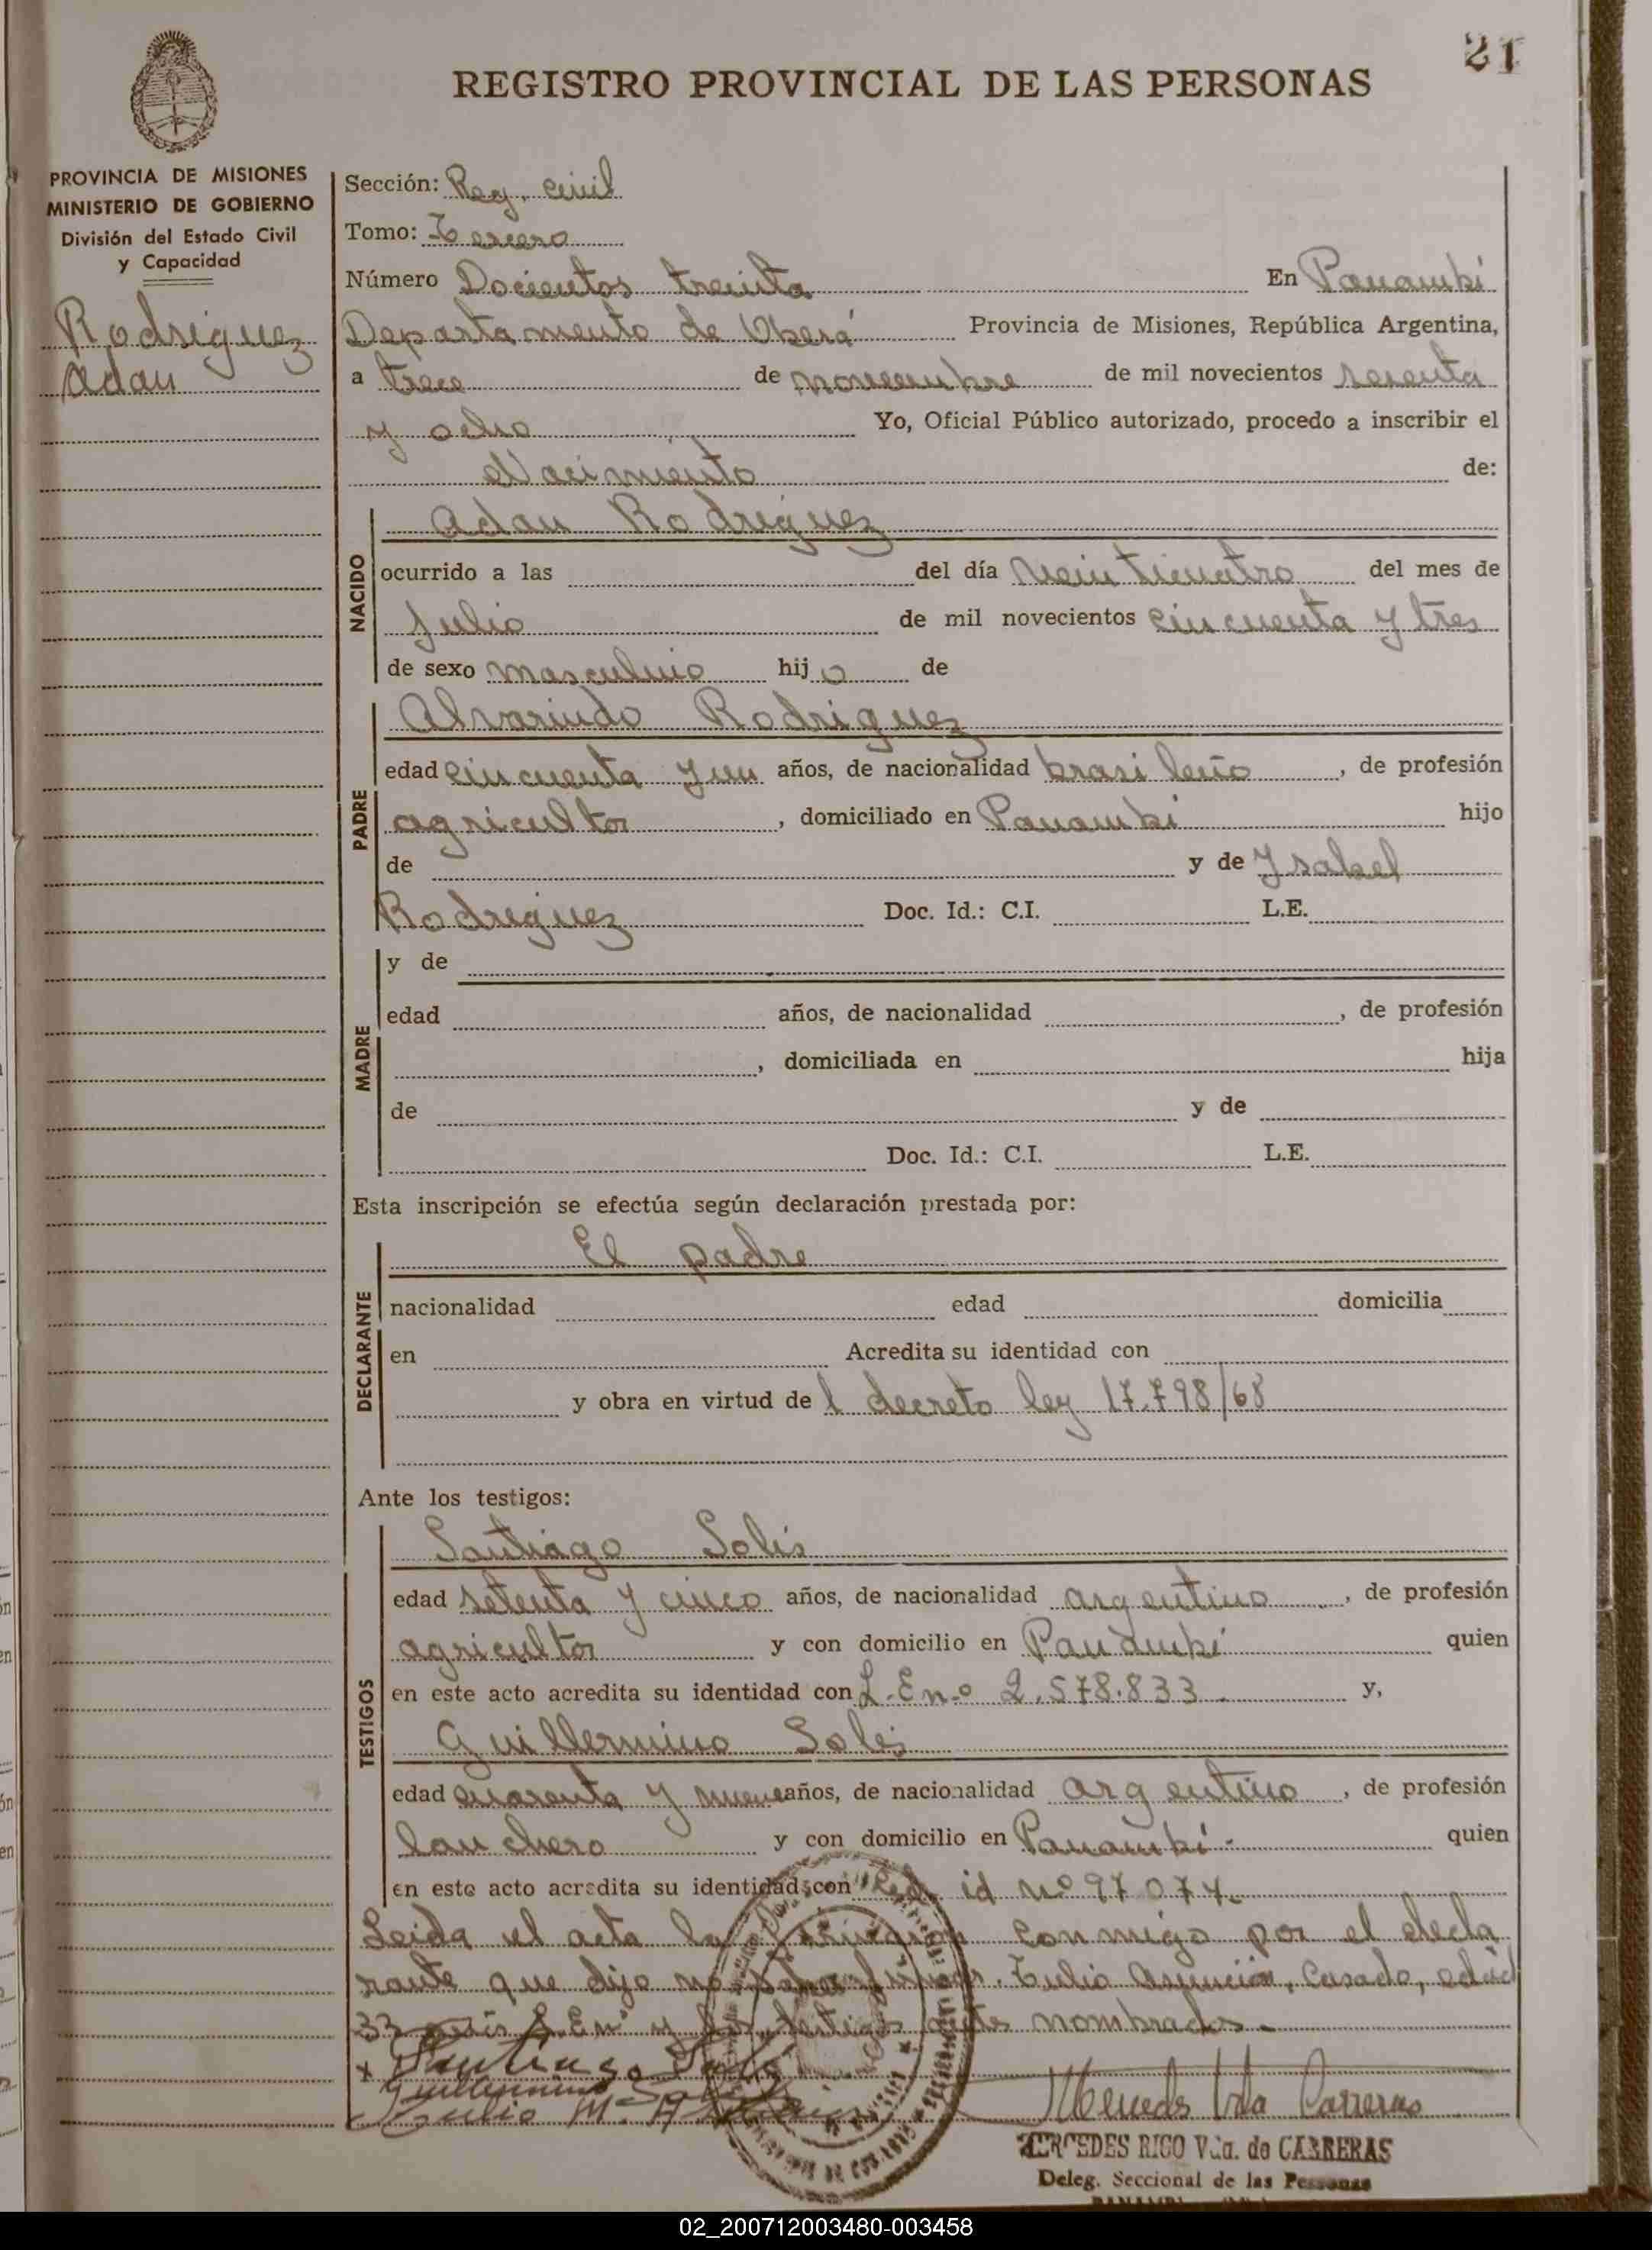 21
REGISTRO PROVINCIAL DE LAS PERSONAS
PROVINCIA DE MISIONES
MINISTERIO DE GOBIERNO
División del Estado Civil
y Capacidad
Rodriguez
Adan
Sección: Reg. civil
Tomo: Tercero
Número Docientos treinta En Panambí
Departamento de Oberá Provincia de Misiones, República Argentina,
a trece de noviembre de mil novecientos sesenta
y ocho Yo, Oficial Público autorizado, procedo a inscribir el
Nacimiento de:
NACIDO
Adan Rodriguez
ocurrido a las del día veinticuatro del mes de
Julio de mil novecientos cincuenta y tres
de sexo masculino hij o de
PADRE
Alvarindo Rodriguez
edad cincuenta y un años, de nacionalidad brasileño, de profesión
agricultor, domiciliado en Panambí hijo
de y de Ysabel
Rodriguez Doc. Id.: C.I. L.E.
MADRE
y de
edad años, de nacionalidad , de profesión
, domiciliada en hija
de y de
Doc. Id.: C.I. L.E.
Esta inscripción se efectúa según declaración prestada por:
DECLARANTE
El padre
nacionalidad edad domicilia
en Acredita su identidad con
y obra en virtud de l decreto ley 17.798/68
Ante los testigos:
TESTIGOS
Santiago Solis
edad setenta y cinco años, de nacionalidad argentino, de profesión
agricultor y con domicilio en Panambí quien
en este acto acredita su identidad con L.E nº 2.578.833 y,
Guillermino Solis
edad cuarenta y nueve años, de nacionalidad argentino, de profesión
lanchero y con domicilio en Panambí.- quien
en este acto acredita su identidad con Ced. id nº 97074.
Leida el acta la conmigo por el decla
rante que dijo no Tulio Asunción, casado, edad
33 L.E nº y los testigos antes nombrados.-
Santiago Solis
Guillermino Solis
Tulio Mª
Mercedes Vda Carreras
MERCEDES RICO Vda. de CARRERAS
Deleg. Seccional de las Personas
02_200712003480-003458